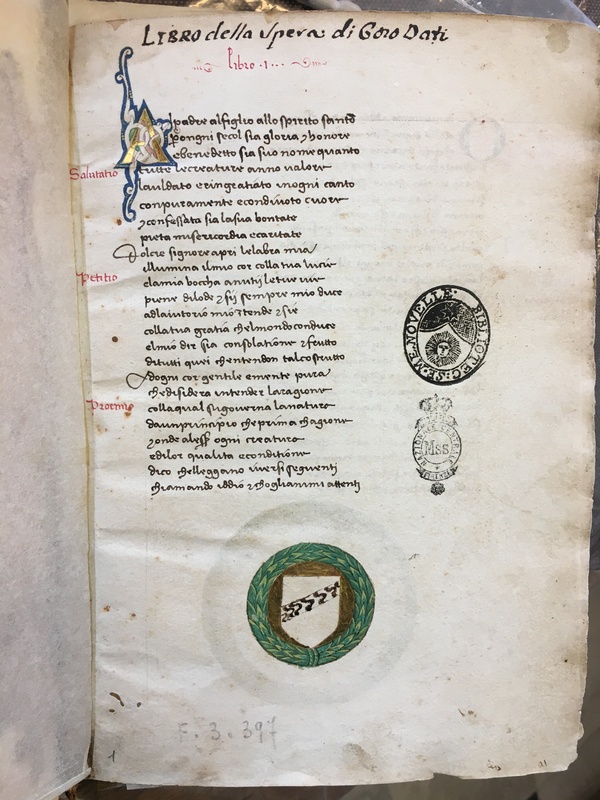 LIBRO della Spera di Goro Dati
libro .I.
Al padre al figlio allo spirito santo
pongni secol sia gloria z honore
ebenedetto sia suo nome quanto
tutte le creature anno valore
lauldato eringratiato inogni canto
conpuramente econdivoto cuore
z confessata sia lasua bontate
pieta misericordia ecaritate
Salutatio
Dolcie signore apri lelabra mia
illumina ilmio cor colla tua lucie
Petitio
piene dilode z sij sempre mio duce
colla tua gratia chelmondo conduce
elmio dir sia consolatione z frutto
ditutti quei chentendon tal costrutto
Adogni cor gentile emente pura
chedisidera intender laragione
Proemio
collaqual sigoverna lanatura
daunprincipio cheprima chagione
ogni creatura
edilor qualita econditione
dico chelleggano iversi seguenti
chiamando iddio z choglianimi attenti
BIBLIOTEC. S. M. E. NOVELLE
Mss
F. 3. 397
1